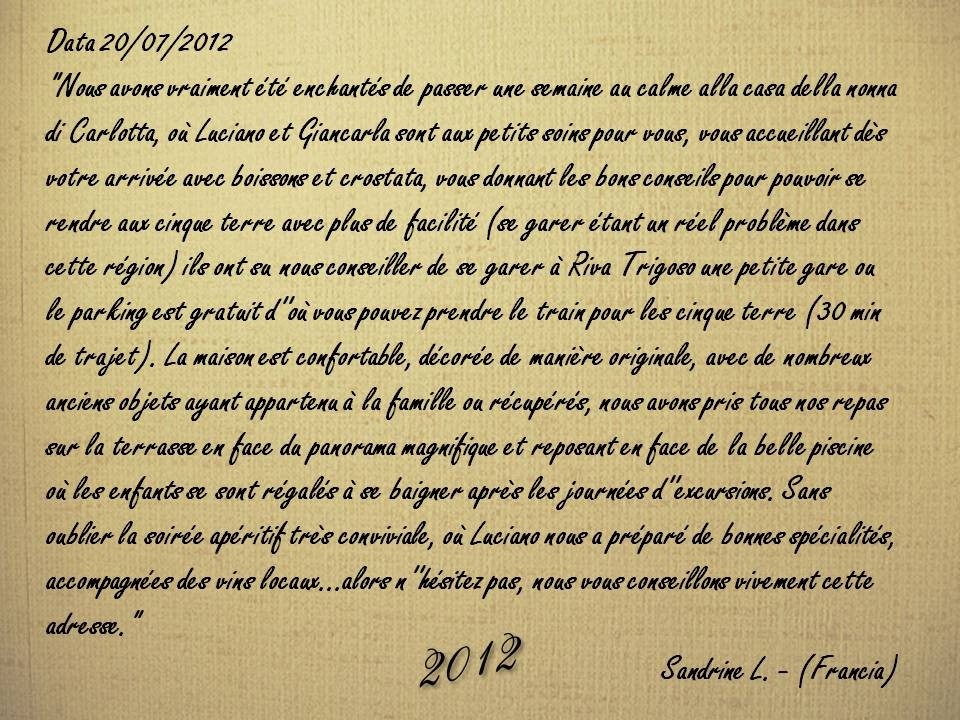 Data 20/07/2012
"Nous avons vraiment été enchantés de passer une semaine au calme alla casa della nonna
di Carlotta, où Luciano et Giancarla sont aux petits soins pour vous, vous accueillant dès
votre arrivée avec boissons et crostata, vous donnant les bons conseils pour pouvoir se
rendre aux cinque terre avec plus de facilité (se garer étant un réel problème dans
cette région) ils ont su nous conseiller de se garer à Riva Trigoso une petite gare ou
le parking est gratuit d"où vous pouvez prendre le train pour les cinque terre (30 min
de trajet). La maison est confortable, décorée de manière originale, avec de nombreux
anciens objets ayant appartenu à la famille ou récupérés, nous avons pris tous nos repas
sur la terrasse en face du panorama magnifique et reposant en face de la belle piscine
où les enfants se sont régalés à se baigner après les journées d"excursions. Sans
oublier la soirée apéritif très conviviale, où Luciano nous a préparé de bonnes spécialités,
accompagnées des vins locaux...alors n"hésitez pas, nous vous conseillons vivement cette
adresse."
2012
Sandrine L. - (Francia)